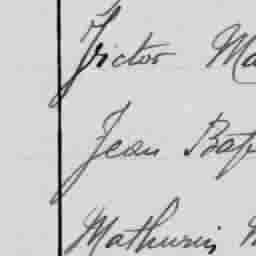 Victor Ma
Jean Bap
Mathurin M